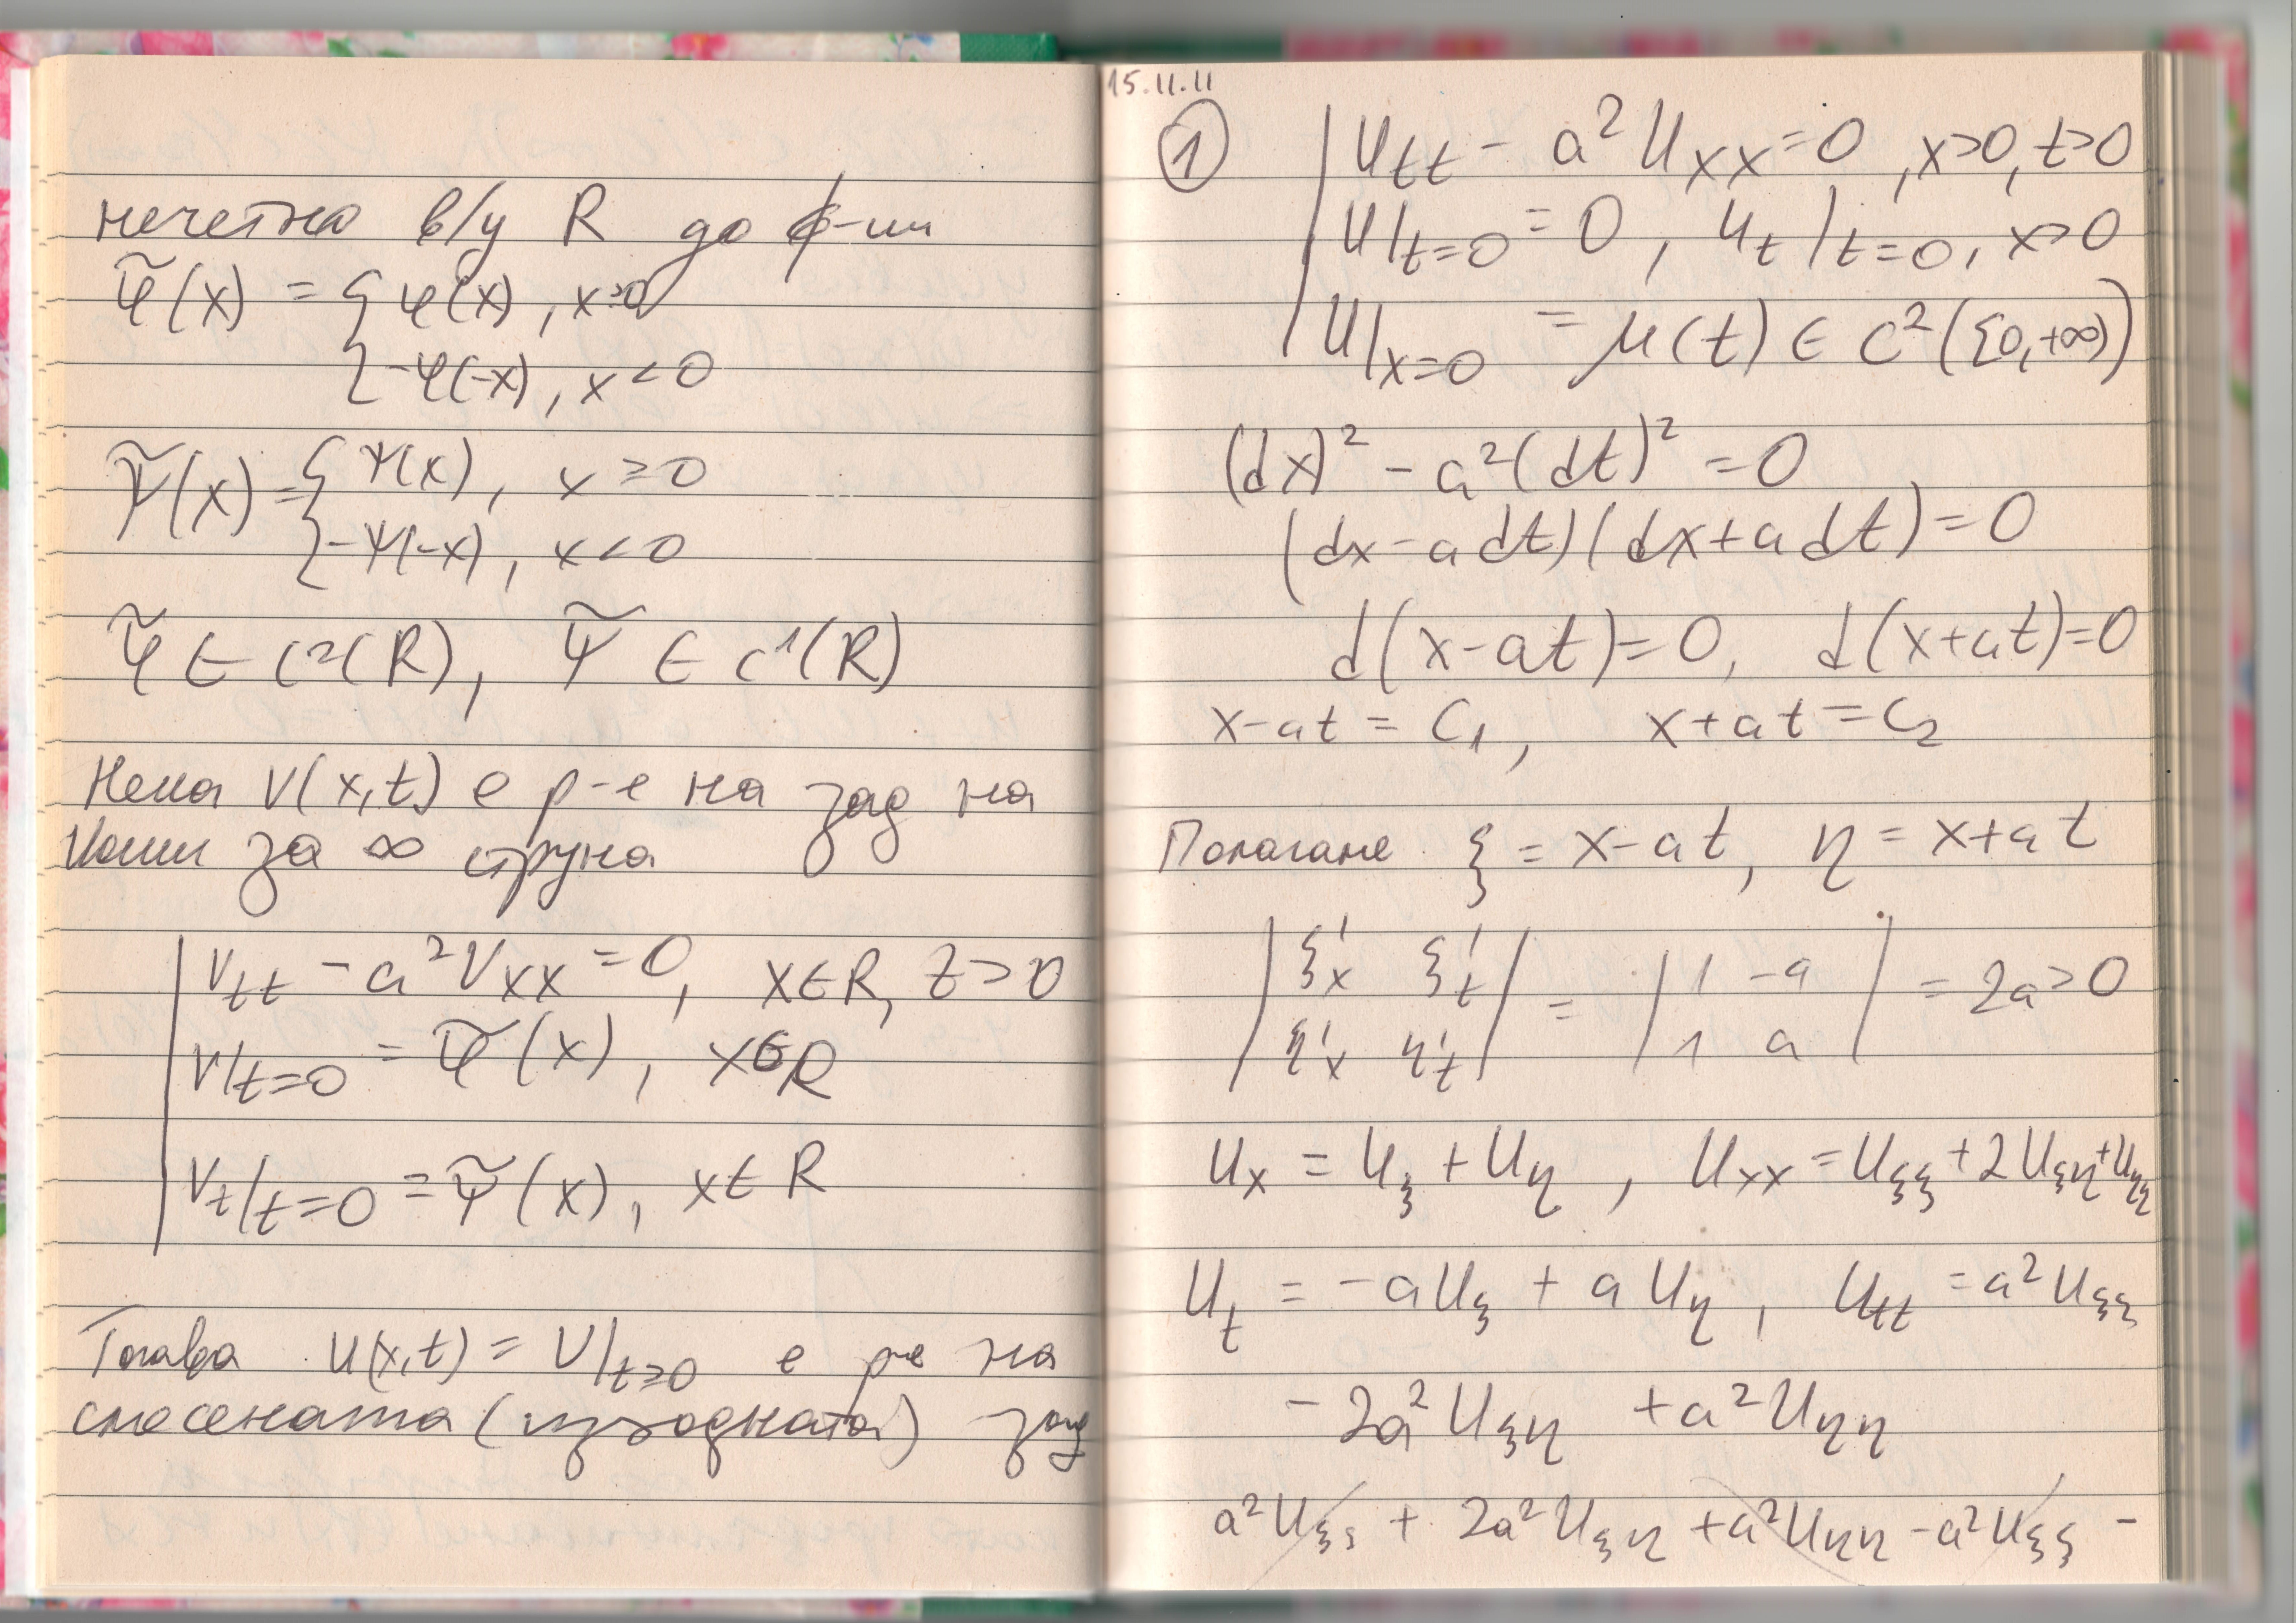 нечетно в/у R до ф-ии
φ̃(x) = { φ(x), x≥0
{ -φ(-x), x<0
ψ̃(x) = { ψ(x), x≥0
{ -ψ(-x), x<0
φ̃ ∈ C²(R), ψ̃ ∈ C¹(R)
Нека V(x,t) е р-е на зад на
Коши за ∞ струна
| V_tt - a²V_xx = 0, x∈R, t>0
| V|_t=0 = φ̃(x), x∈R
| V_t|_t=0 = ψ̃(x), x∈R
Тогава u(x,t) = V|_t≥0 е р-е на
смесената (изходната) зад
15.11.11
① | U_tt - a²U_xx = 0, x>0, t>0
| U|_t=0 = 0, U_t|_t=0, x>0
| U|_x=0 = μ(t) ∈ C²([0,+∞))
(dx)² - a²(dt)² = 0
(dx-adt)(dx+adt) = 0
d(x-at)=0, d(x+at)=0
x-at = C₁, x+at = C₂
Полагаме ξ = x-at, η = x+at
| ξ'_x ξ'_t | = | 1 -a | = 2a>0
| η'_x η'_t | | 1 a |
U_x = U_ξ + U_η, U_xx = U_ξξ + 2U_ξη + U_ηη
U_t = -aU_ξ + aU_η, U_tt = a²U_ξξ
- 2a²U_ξη + a²U_ηη
a²U_ξξ + 2a²U_ξη + a²U_ηη - a²U_ξξ -